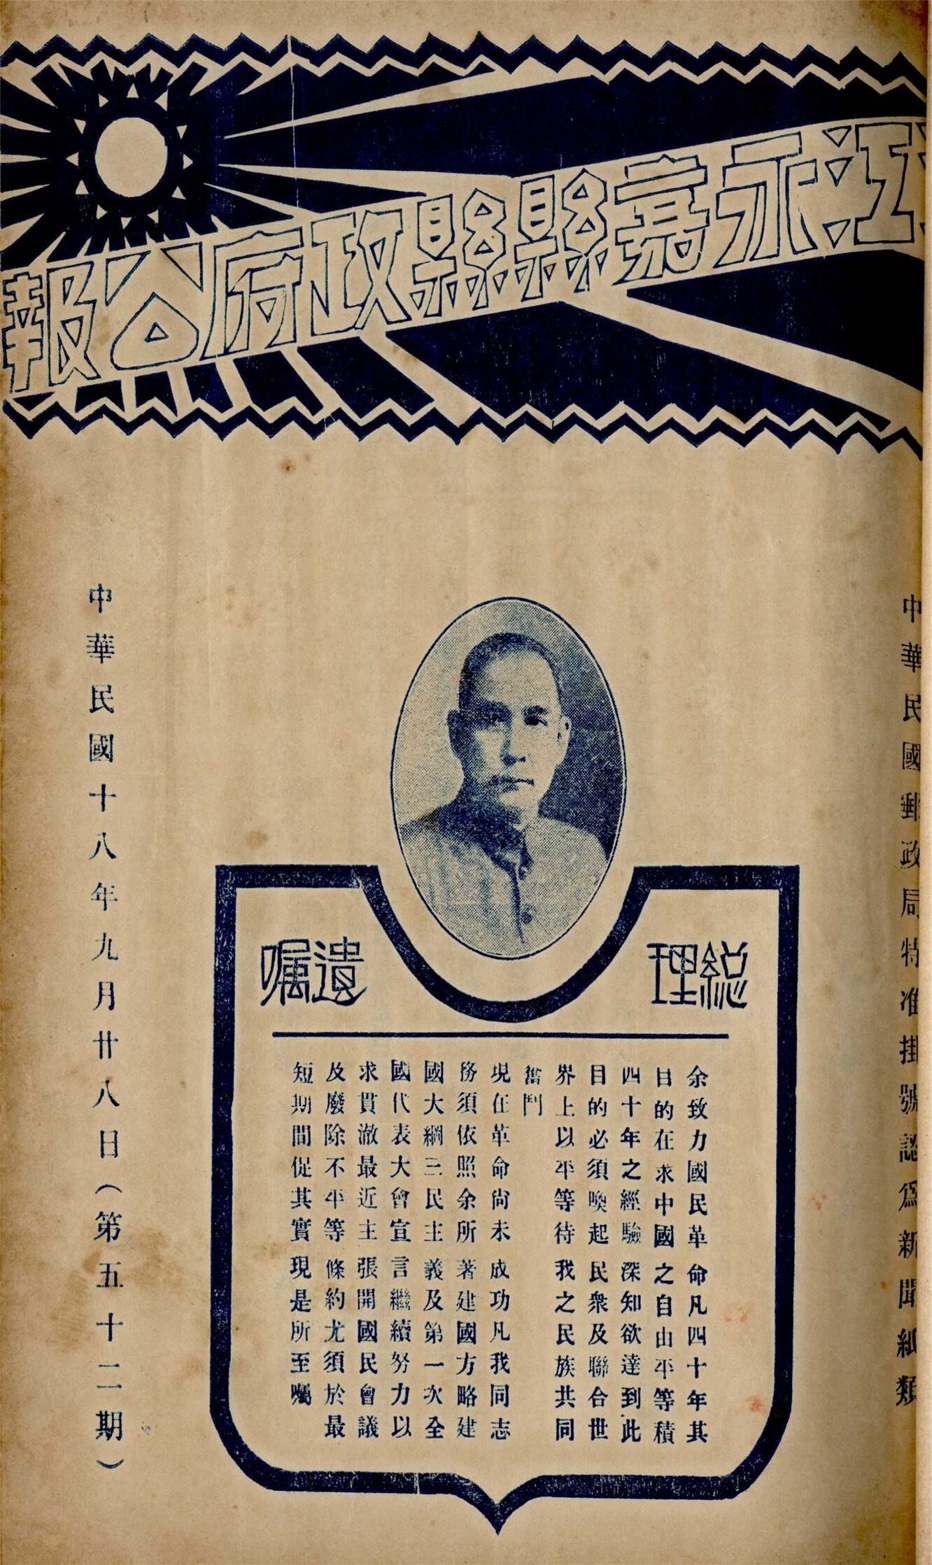 江永嘉縣縣政府公報
中華民國郵政局特准掛號認爲新聞紙類
総理
遺嘱
余致力國民革命凡四十年其
目的在求中國之自由平等積
四十年之經驗深知欲達到此
目的必須喚起民衆及聯合世
界上以平等待我之民族共同
奮鬥
現在革命尚未成功凡我同志
務須依照余所著建國方略建
國大綱三民主義及第一次全
國代表大會宣言繼續努力以
求貫澈最近主張開國民會議
及廢除不平等條約尤須於最
短期間促其實現是所至囑
中華民國十八年九月廿八日（第五十二期）